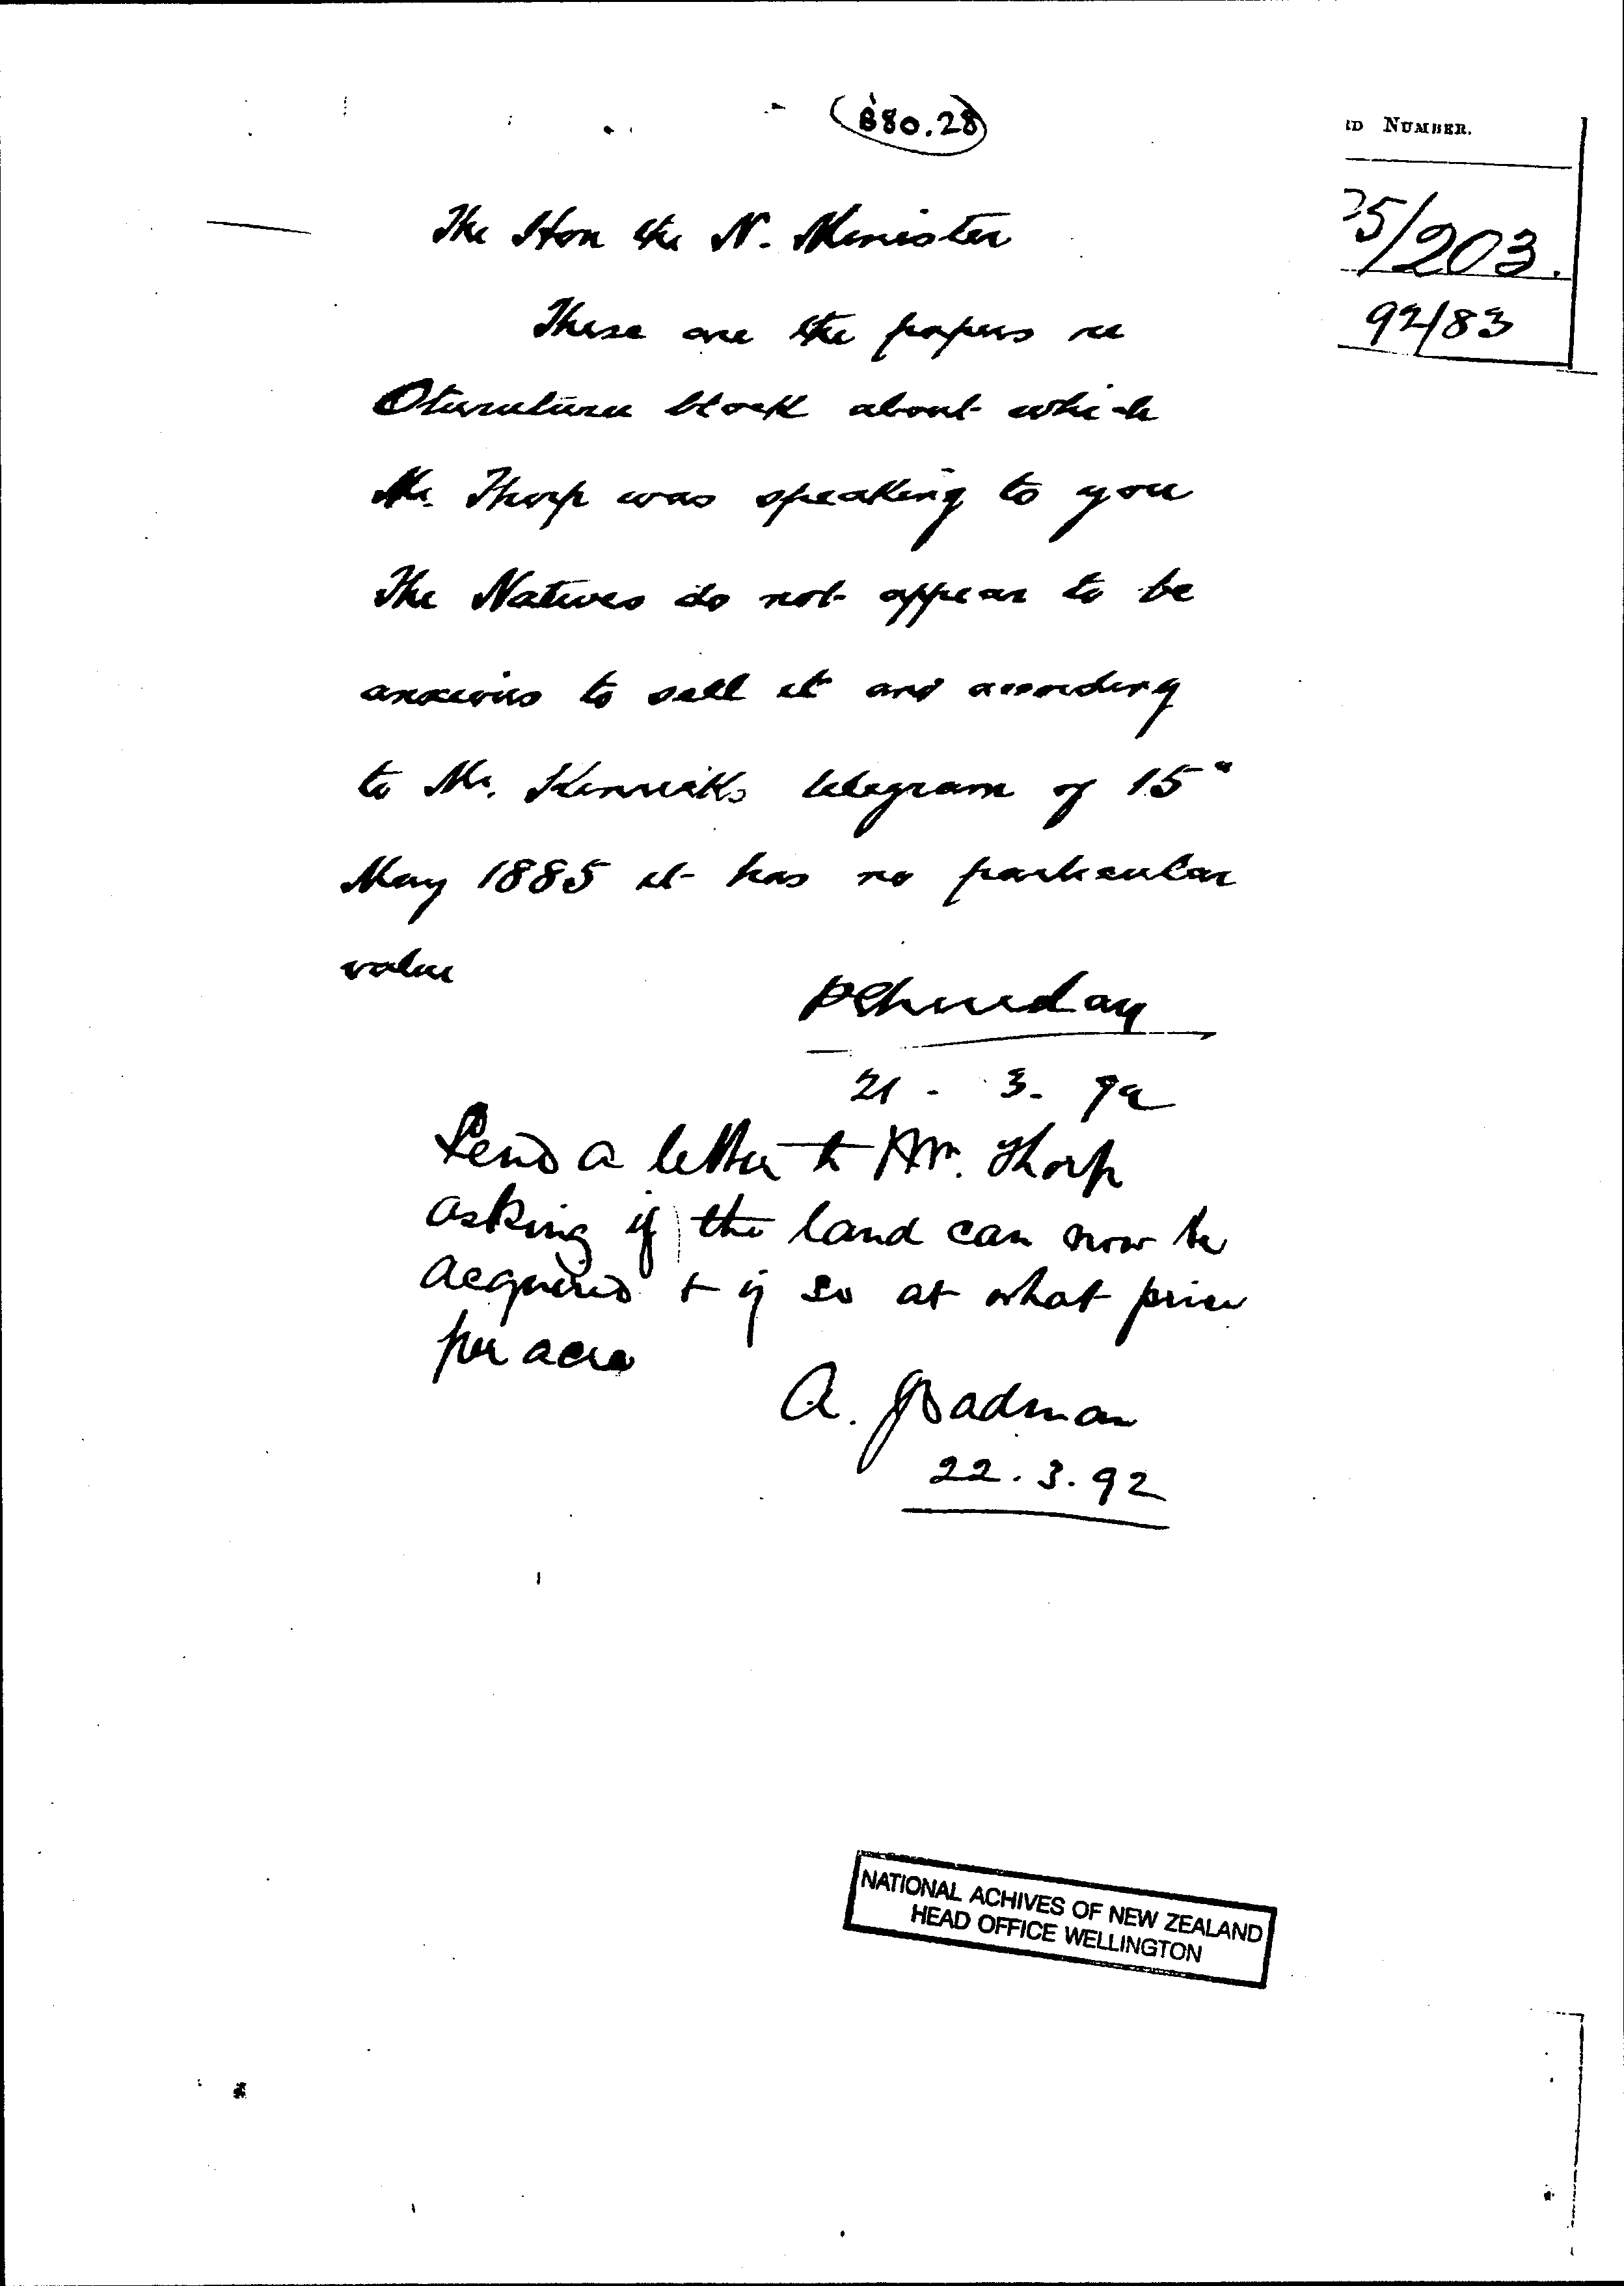 880.28
ID NUMBER.
5/203.
92/83
The Hon the N. Minister
These are the papers re
Oturuturu block about which
Mr. Thorp was speaking to you
The Natives do not appear to be
anxious to sell it and according
to Mr. Kenricks telegram of 15"
May 1885 it has no particular
value
PSheridan
21 - 3 - 92
Send a letter to Mr. Thorp
asking if the land can now be
acquired + if so at what price
per acre
A. Cadman
22.3.92
NATIONAL ACHIVES OF NEW ZEALAND
HEAD OFFICE WELLINGTON